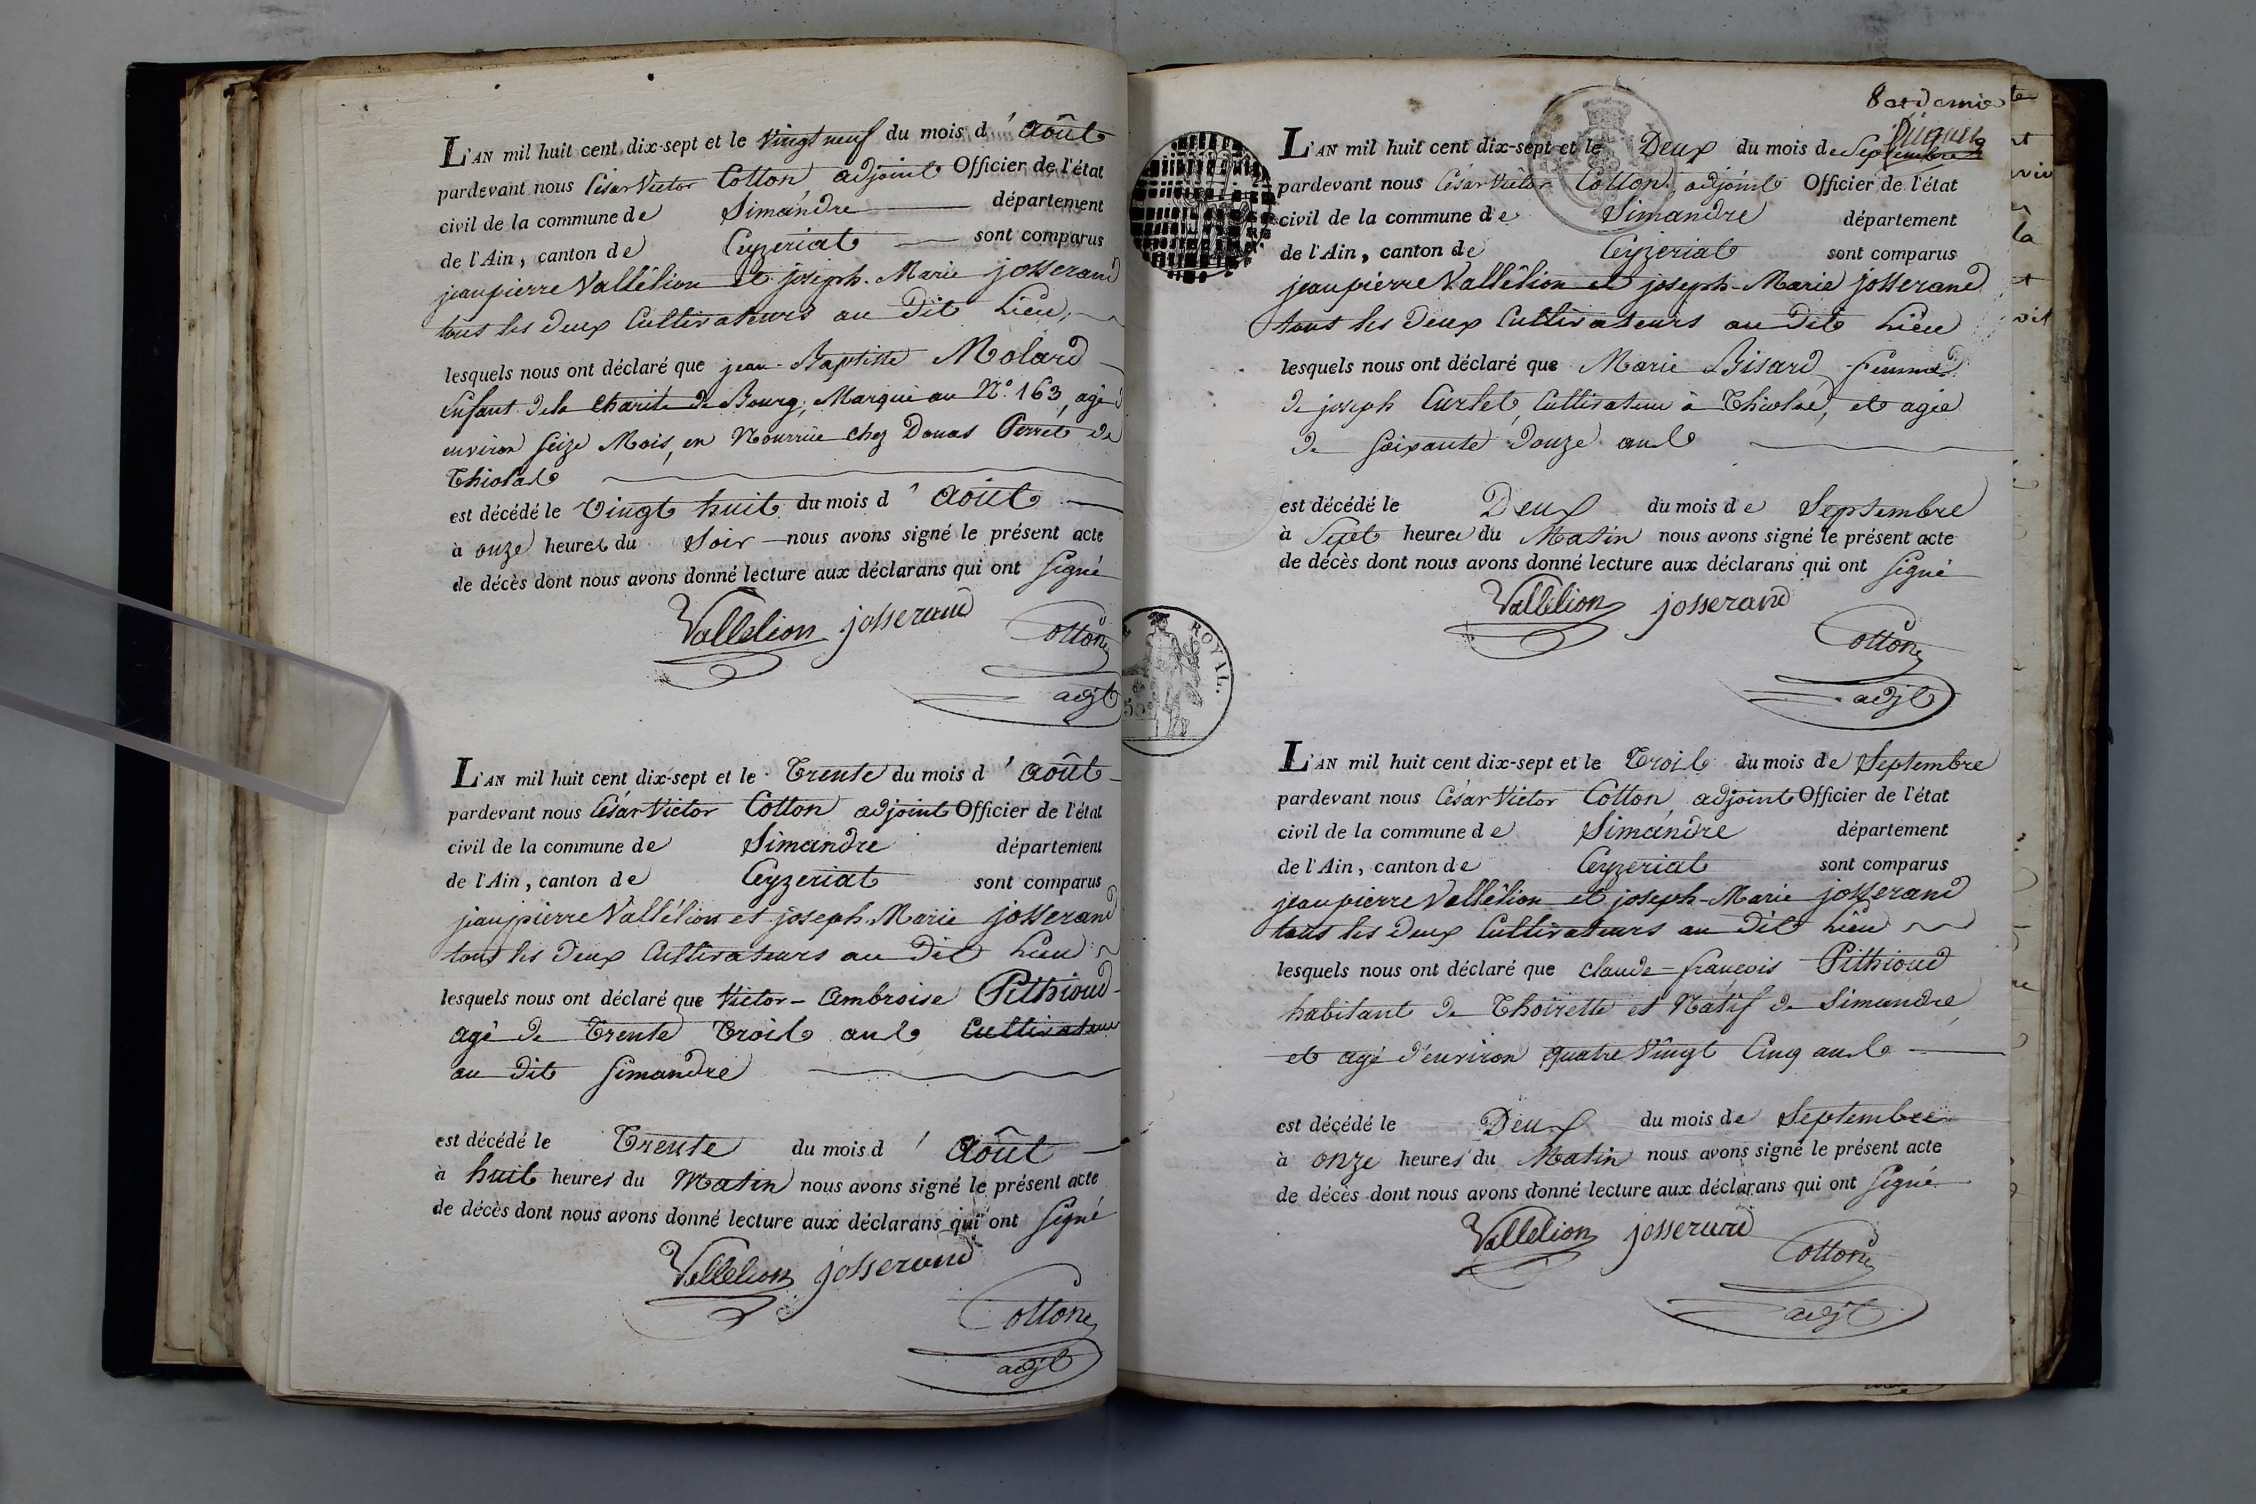 L'AN mil huit cent dix-sept et le Vingt neuf du mois d' Août
pardevant nous César Victor Cotton adjoint Officier de l'état
civil de la commune de Simandre département
de l'Ain, canton de Ceyzeriat sont comparus
jean pierre Vallélion et joseph-Marie josserand
tous les deux Cultivateurs au dit Lieu,
lesquels nous ont déclaré que jean-Baptiste Molard
Enfant de la Charité de Bourg, Marqué au N.º 163, agé d
environ seize Mois, en Nourrice chez Donas Perret de
Thiolat
est décédé le Vingt huit du mois d' Août
à onze heures du Soir nous avons signé le présent acte
de décès dont nous avons donné lecture aux déclarans qui ont signé
Vallelion josserand
Cotton
adjt
L'AN mil huit cent dix-sept et le Trente du mois d' Août
pardevant nous César Victor Cotton adjoint Officier de l'état
civil de la commune de Simandre département
de l'Ain, canton de Ceyzeriat sont comparus
jean pierre Vallélion et joseph-Marie josserand
tous les deux Cultivateurs au dit Lieu
lesquels nous ont déclaré que Victor-Ambroise Pithioud
agé de Trente Trois ans Cultivateur
au dit Simandre
est décédé le Trente du mois d' Août
à huit heures du Matin nous avons signé le présent acte
de décès dont nous avons donné lecture aux déclarans qui ont signé
Vallelion josserand
Cotton
adjt
8 et demie
L'AN mil huit cent dix-sept et le Deux du mois de Septembre
pardevant nous César Victor Cotton adjoint Officier de l'état
civil de la commune de Simandre département
de l'Ain, canton de Ceyzeriat sont comparus
jean pierre Vallélion et joseph-Marie josserand
tous les deux Cultivateurs au dit Lieu
lesquels nous ont déclaré que Marie Bisard femme
de joseph Curlet, Cultivateur à Thiolat, et agée
de soixante douze ans
est décédé le Deux du mois de Septembre
à Sept heures du Matin nous avons signé le présent acte
de décès dont nous avons donné lecture aux déclarans qui ont signé
Vallelion josserand
Cotton
adjt
ROYAL.
L'AN mil huit cent dix-sept et le Trois du mois de Septembre
pardevant nous César Victor Cotton adjoint Officier de l'état
civil de la commune de Simandre département
de l'Ain, canton de Ceyzeriat sont comparus
jean pierre Vallélion et joseph-Marie josserand
tous les deux Cultivateurs au dit Lieu
lesquels nous ont déclaré que claude-françois Pithioud
habitant de Thoirette et Natif de Simandre,
et agé d'environ quatre Vingt Cinq ans
est décédé le Deux du mois de Septembre
à onze heures du Matin nous avons signé le présent acte
de décès dont nous avons donné lecture aux déclarans qui ont signé
Vallelion josserand
Cotton
adjt